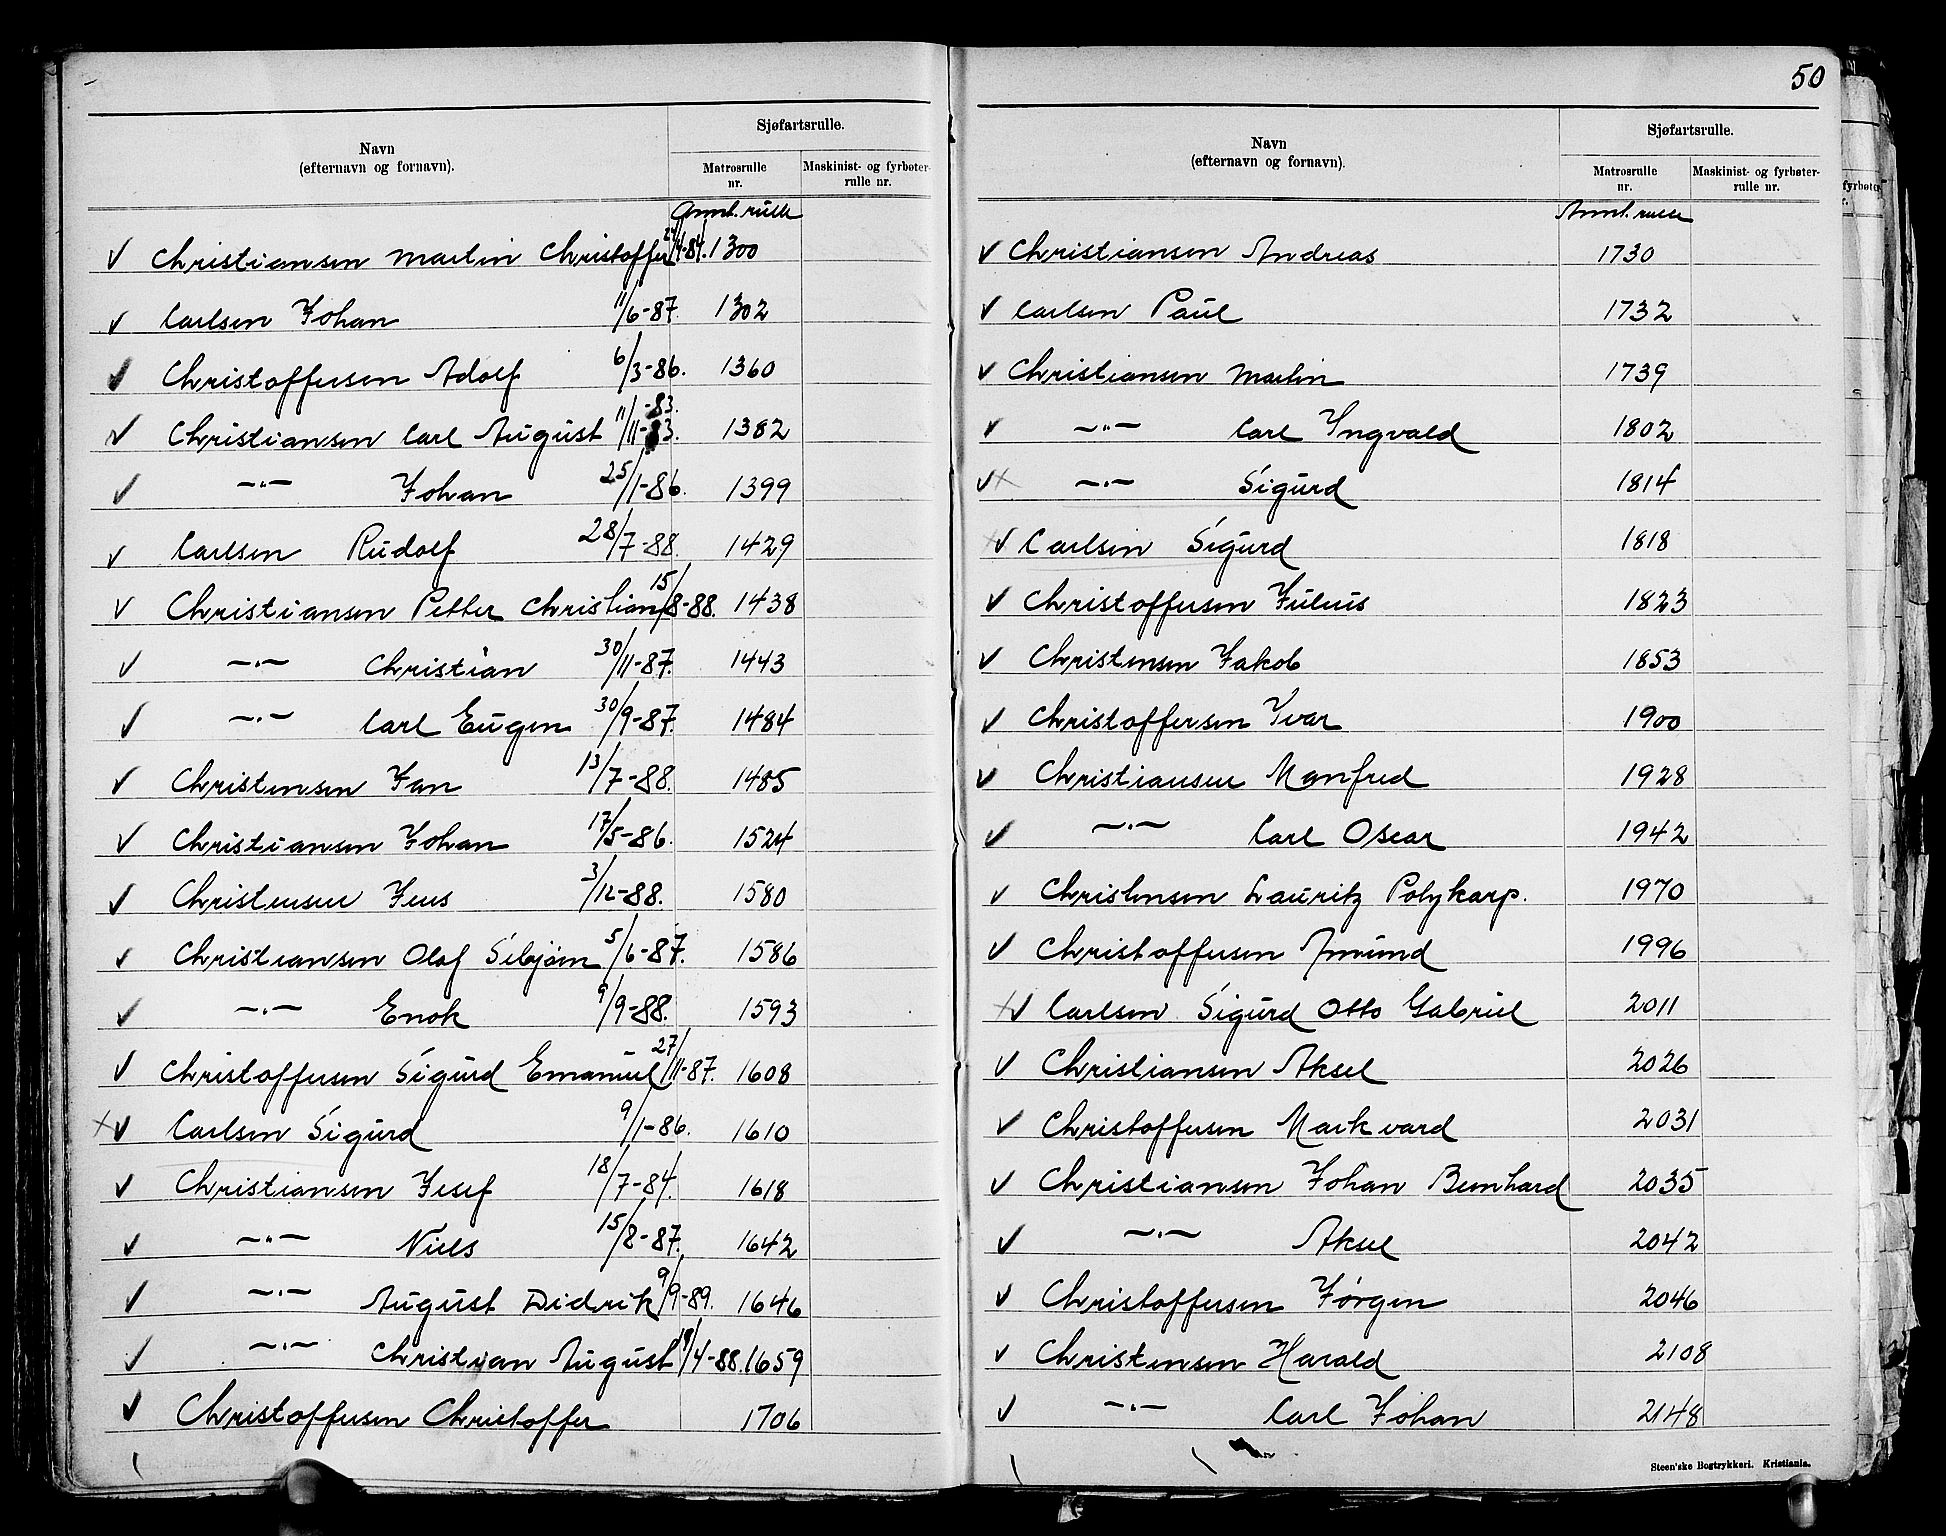 Navn
(efternavn og fornavn).
Sjøfartsrulle.
Matrosrulle
nr.
Maskinist- og fyrbøter-
rulle nr.
Annt. rulle
✓ Christiansen Martin Christoffer /4-84. 1300
✓ Carlsen Johan 11/6-87. 1302
✓ Christoffersen Adolf 6/3-86. 1360
✓ Christiansen Carl August 11/11-83. -83. 1382
✓ —"— Johan 25/1-86. 1399
✓ Carlsen Rudolf 28/7-88. 1429
✓ Christiansen Petter Christian 15/8-88. 1438
✓ —"— Christian 30/11-87. 1443
✓ —"— Carl Eugen 30/9-87. 1484
✓ Christensen Jan 13/7-88. 1485
✓ Christiansen Johan 17/5-86. 1524
✓ Christensen Jens 3/12-88. 1580
✓ Christiansen Olaf Sibjørn 5/6-87. 1586
✓ —"— Enok 9/9-88. 1593
✓ Christoffersen Sigurd Emanuel 27/11-87. 1608
×✓ Carlsen Sigurd 9/1-86. 1610
✓ Christiansen Josef 18/7-84. 1618
✓ —"— Niels 15/8-87. 1642
✓ —"— August Didrik 9/9-89. 1646
✓ —"— Christian August /4-88. 1659
✓ Christoffersen Christoffer 1706
50
Navn
(efternavn og fornavn).
Sjøfartsrulle.
Matrosrulle
nr.
Maskinist- og fyrbøter-
rulle nr.
Annt. rulle
✓ Christiansen Andreas 1730
✓ Carlsen Paul 1732
✓ Christiansen Martin 1739
✓ —"— Carl Yngvald 1802
✓× —"— Sigurd 1814
×✓ Carlsen Sigurd 1818
✓ Christoffersen Julius 1823
✓ Christensen Jakob 1853
✓ Christoffersen Ivar 1900
✓ Christiansen Manfred 1928
✓ —"— Carl Oscar 1942
✓ Christensen Lauritz Polykarp. 1970
✓ Christoffersen Amund 1996
×✓ Carlsen Sigurd Otto Gabriel 2011
✓ Christiansen Aksel 2026
✓ Christoffersen Markvard 2031
✓ Christiansen Johan Bernhard 2035
✓ —"— Aksel 2042
✓ Christoffersen Jørgen 2046
✓ Christensen Harald 2108
✓ —"— Carl Johan 2148
Steen'ske Bogtrykkeri. Kristiania.
fyrbøte